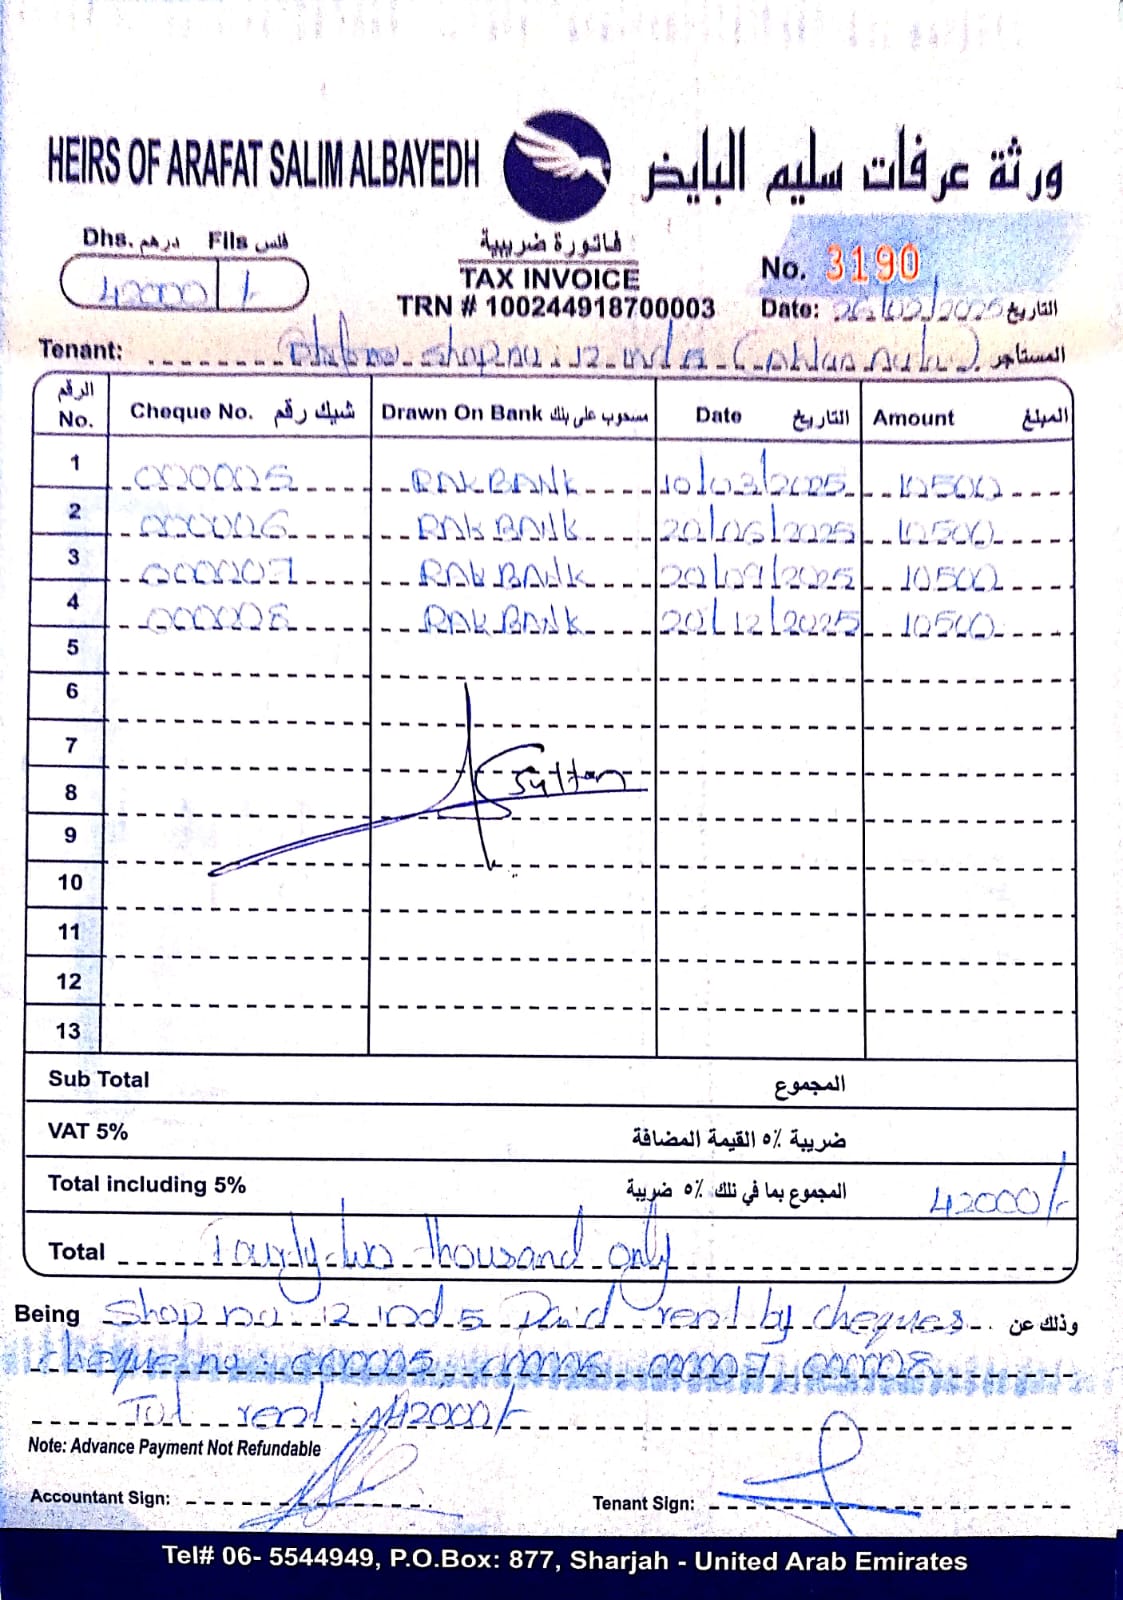 HEIRS OF ARAFAT SALIM ALBAYEDH
ورثة عرفات سليم البايض
Dhs. درهم Fils فلس
42000 /-
فاتورة ضريبية
TAX INVOICE
TRN # 100244918700003
No. 3190
Date: 26/02/2025 التاريخ
Tenant: shop no: 12 ind 5 المستاجر
الرقم No. Cheque No. شيك رقم Drawn On Bank مسحوب على بنك Date التاريخ Amount المبلغ
1 000005 RAKBANK 10/03/2025 10500
2 000006 RAK BANK 20/06/2025 10500
3 000007 RAK BANK 20/09/2025 10500
4 000008 RAK BANK 20/12/2025 10500
5
6
7
8 Sultan
9
10
11
12
13
Sub Total المجموع
VAT 5% ضريبة ٥٪ القيمة المضافة
Total including 5% المجموع بما في ذلك ٥٪ ضريبة 42000/-
Total Fourty two thousand only
Being Shop no 12 ind 5 Paid rent by cheques وذلك عن
cheque no: 000005, 000006 000007 000008
rent: 42000/-
Note: Advance Payment Not Refundable
Accountant Sign:
Tenant Sign:
Tel# 06- 5544949, P.O.Box: 877, Sharjah - United Arab Emirates